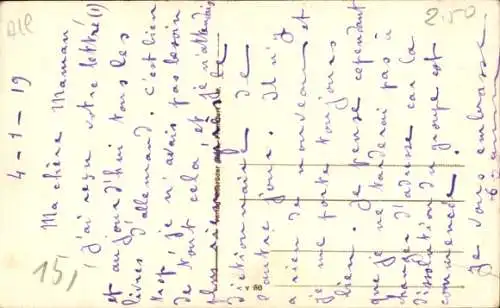 4-1-19
Ma chère Maman
J'ai reçu votre lettre (1)
et aujourd'hui tous les
livres d'allemand. C'est bien
trop, je n'avais pas besoin
de tout cela et je n'attendais
plus
dictionnaire de
l'autre jour. Il n'y
a rien de nouveau et
je me porte toujours
bien. Je pense cependant
que je ne tarderai pas à
changer d'adresse car la
dissolution du groupe est
commencée.
Je vous embrasse
2.50
15,